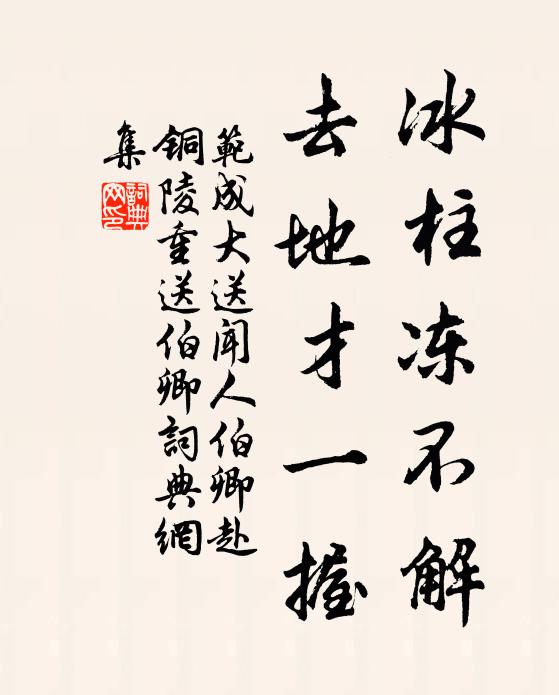 冰柱冻不解
去地才一握
範成大送聞人伯卿赴
铜陵重送伯卿詞典網
集
詞典
网印